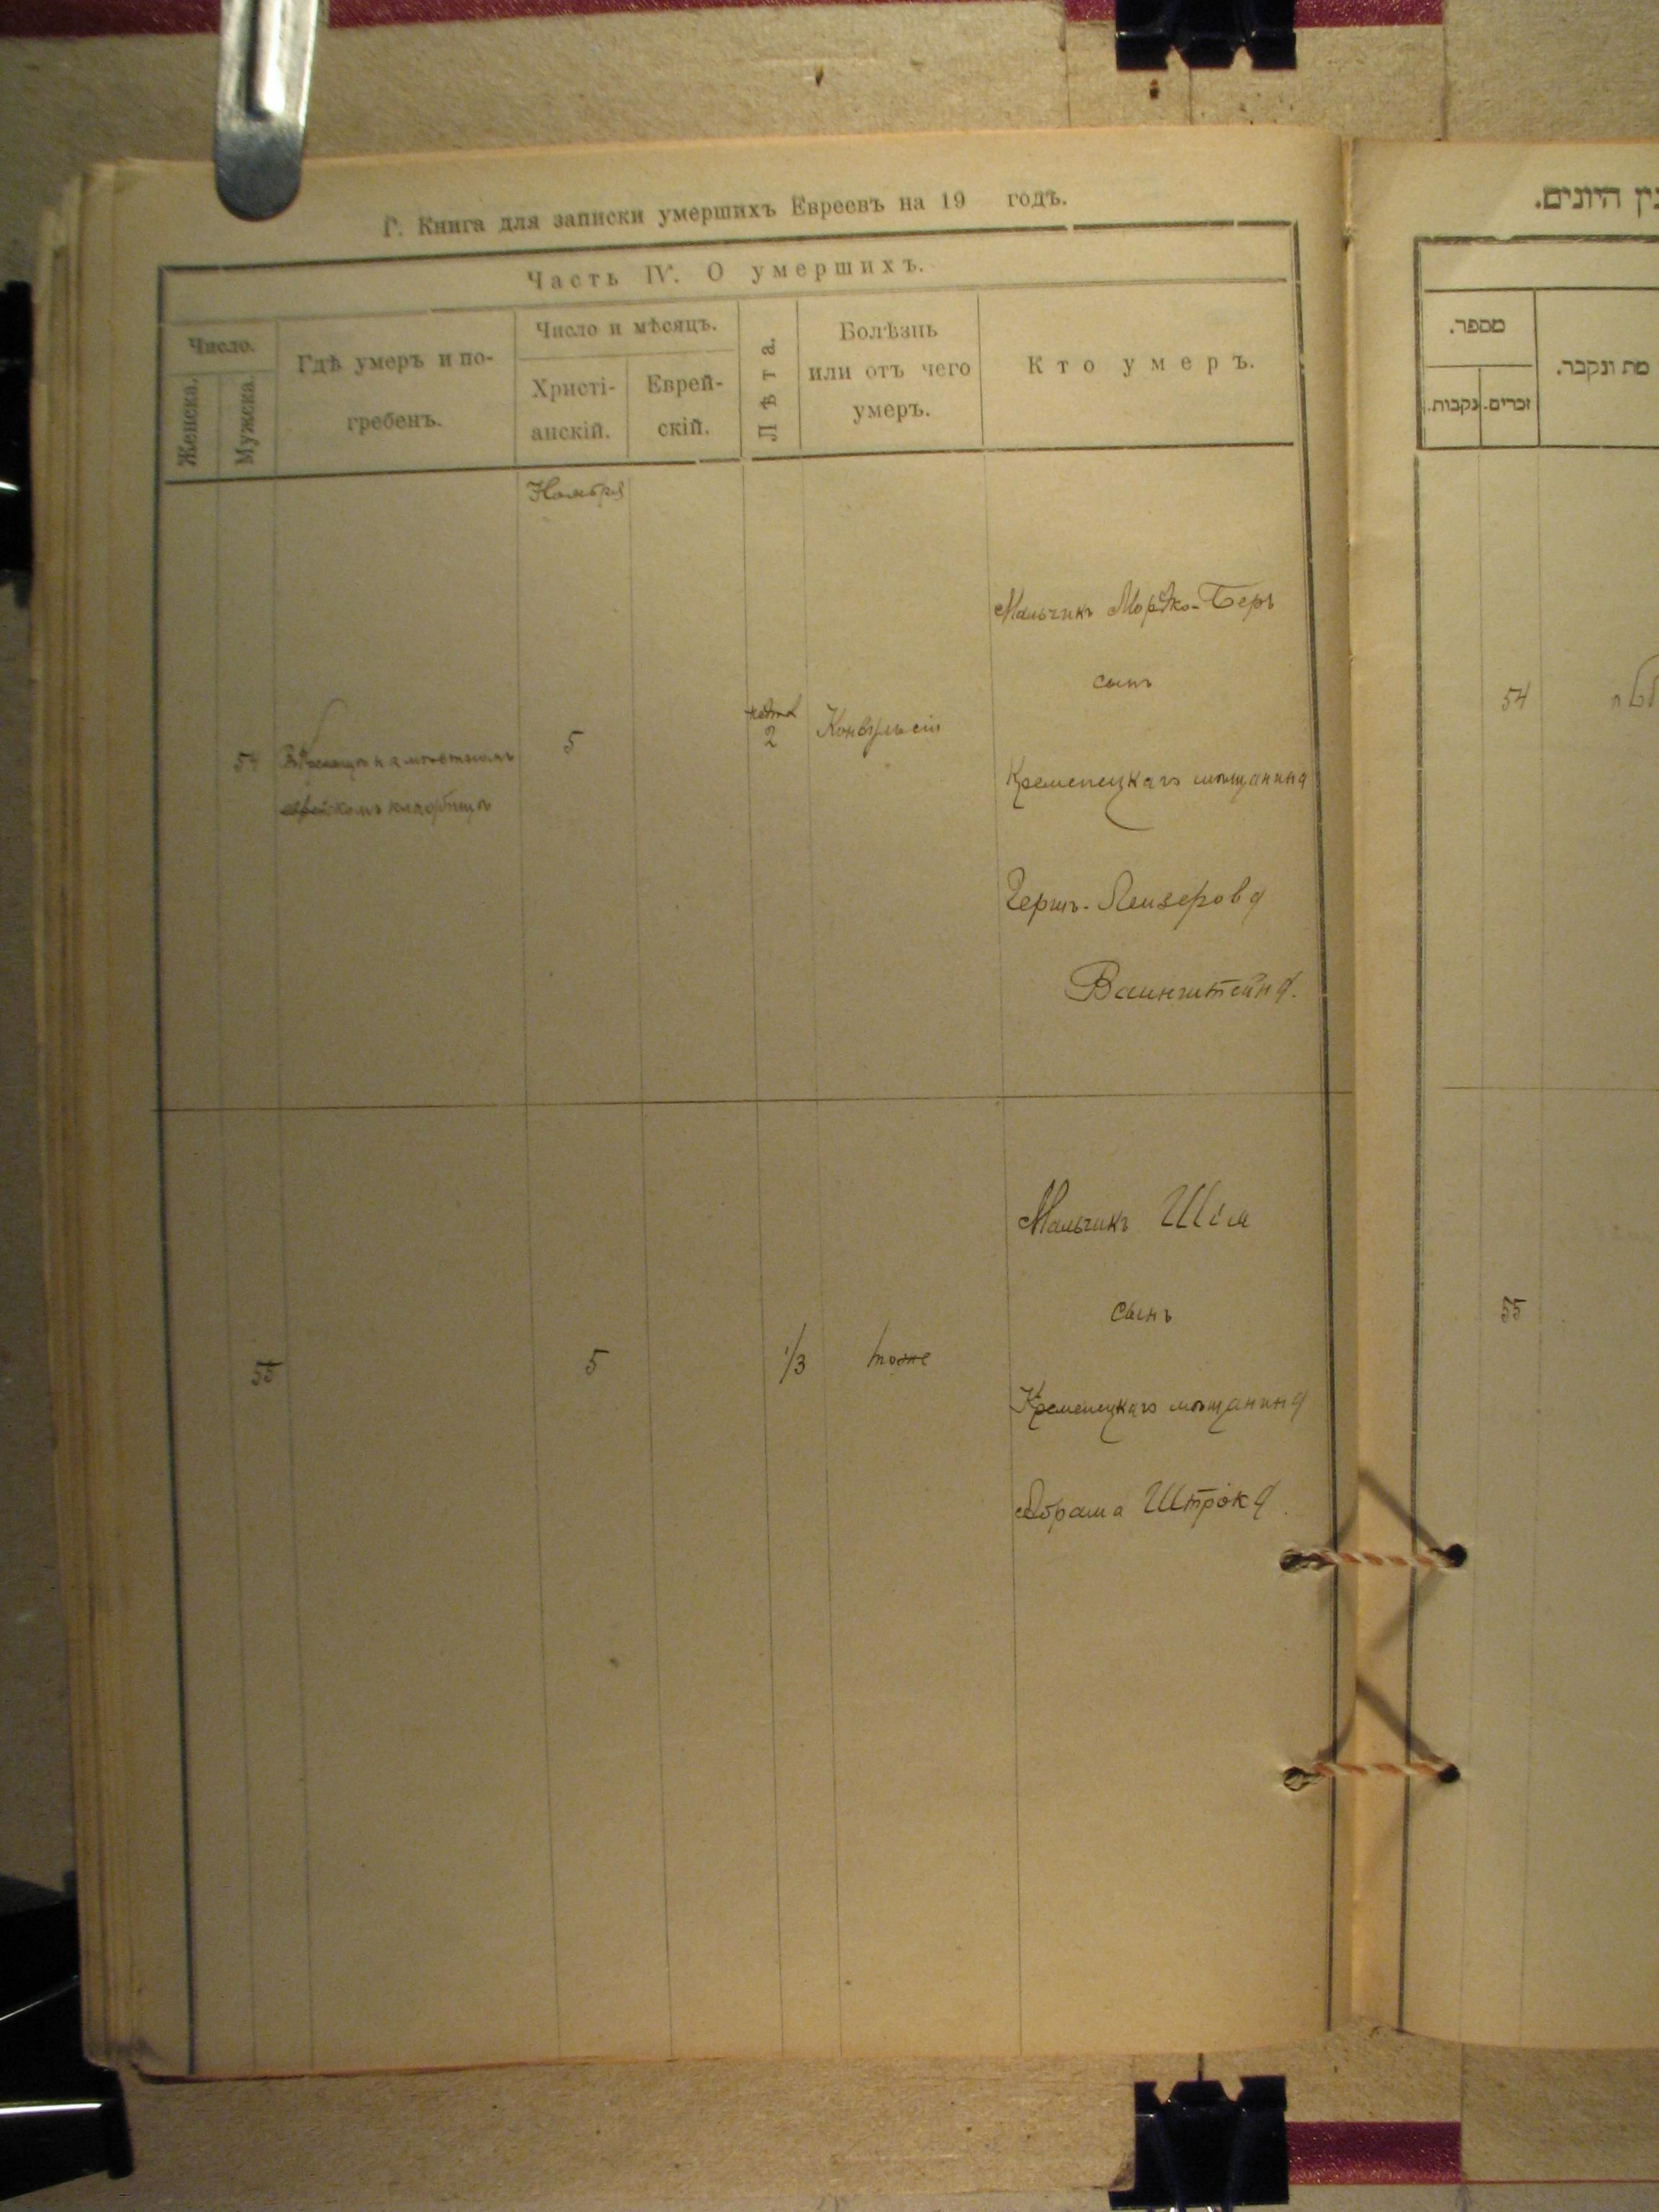 Г. Книга для записки умершихъ Евреевъ на 19 годъ.
Часть IV. О умершихъ.
Число.
Женска.
Мужска.
Гдѣ умеръ и по-
гребенъ.
Число и мѣсяцъ.
Христі-
анскій.
Еврей-
скій.
Лѣта.
Болѣзнь
или отъ чего
умеръ.
Кто умеръ.
Ноября
54
на мѣстномъ
еврейскомъ кладбищѣ
5
2
Конвульсіи
Мальчикъ Мордко-Беръ
сынъ
Кременецкаго мѣщанина
Гершъ-Лейзерова
Вайнштейна.
55
5
1/3
тоже
Мальчикъ Шія
сынъ
Кременецкаго мѣщанина
Абрама Штрока.
מספר.
זכרים.
נקבות.
מת ונקבר.
54
55